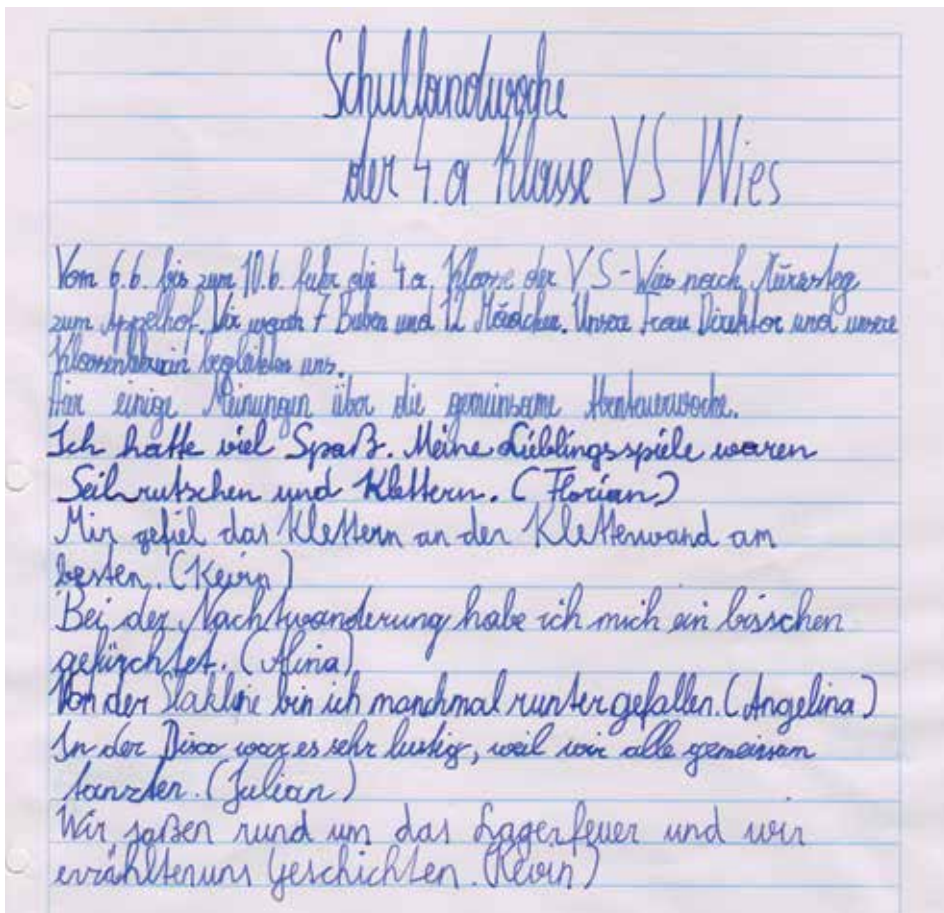 Schullandwoche
der 4.a Klasse VS Wies
Vom 6.6. bis zum 10.6. fuhr die 4a. Klasse der VS-Wies nach Mürzsteg
zum Appelhof. Wir waren 7 Buben und 12 Mädchen. Unsere Frau Direktor und unsere
Klassenlehrerin begleiteten uns.
Hier einige Meinungen über die gemeinsame Abenteuerwoche.
Ich hatte viel Spaß. Meine Lieblingsspiele waren
Seilrutschen und Klettern. (Florian)
Mir gefiel das Klettern an der Kletterwand am
besten. (Kevin)
Bei der Nachtwanderung habe ich mich ein bisschen
gefürchtet. (Alina)
Von der Slakline bin ich manchmal runter gefallen. (Angelina)
In der Disco war es sehr lustig, weil wir alle gemeinsam
tanzten. (Julian)
Wir saßen rund um das Lagerfeuer und wir
erzählten uns Geschichten. (Kevin)